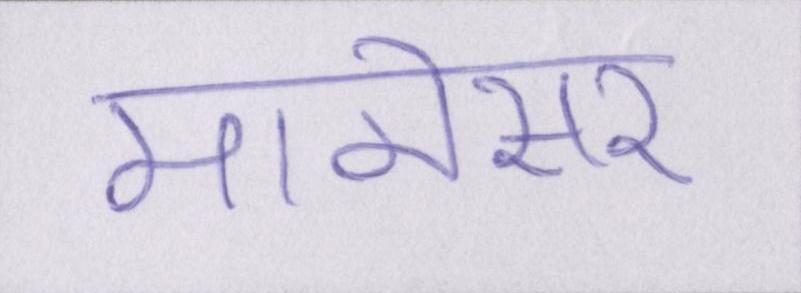 मानेसर